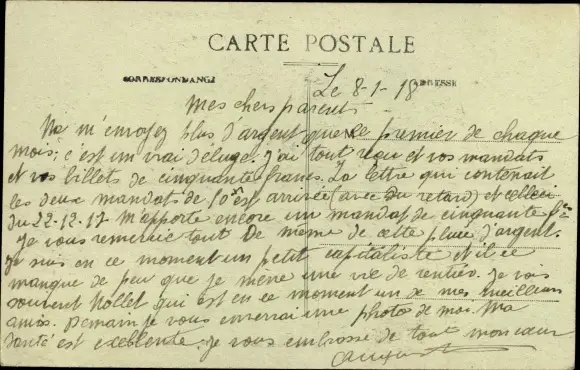 CARTE POSTALE
CORRESPONDANCE
ADRESSE
Le 8-1-18
Mes chers parents
Ne m'envoyez plus d'argent que le premier de chaque
mois; c'est un vrai déluge. J'ai tout reçu et vos mandats
et vos billets de cinquante francs. La lettre qui contenait
les deux mandats de 10 est arrivée (avec du retard) et celleci
du 22-12-17 m'apporte encore un mandat de cinquante
Je vous remercie tout De même de cette pluie d'argent.
Je suis en ce moment un petit capitaliste et il ce
manque de peu que je mène une vie de rentier. Je vois
souvent Nollet qui est en ce moment un de mes meilleurs
amis. Demain je vous enverrai une photo de moi. Ma
santé est excellente. Je vous embrasse de tout mon cœur